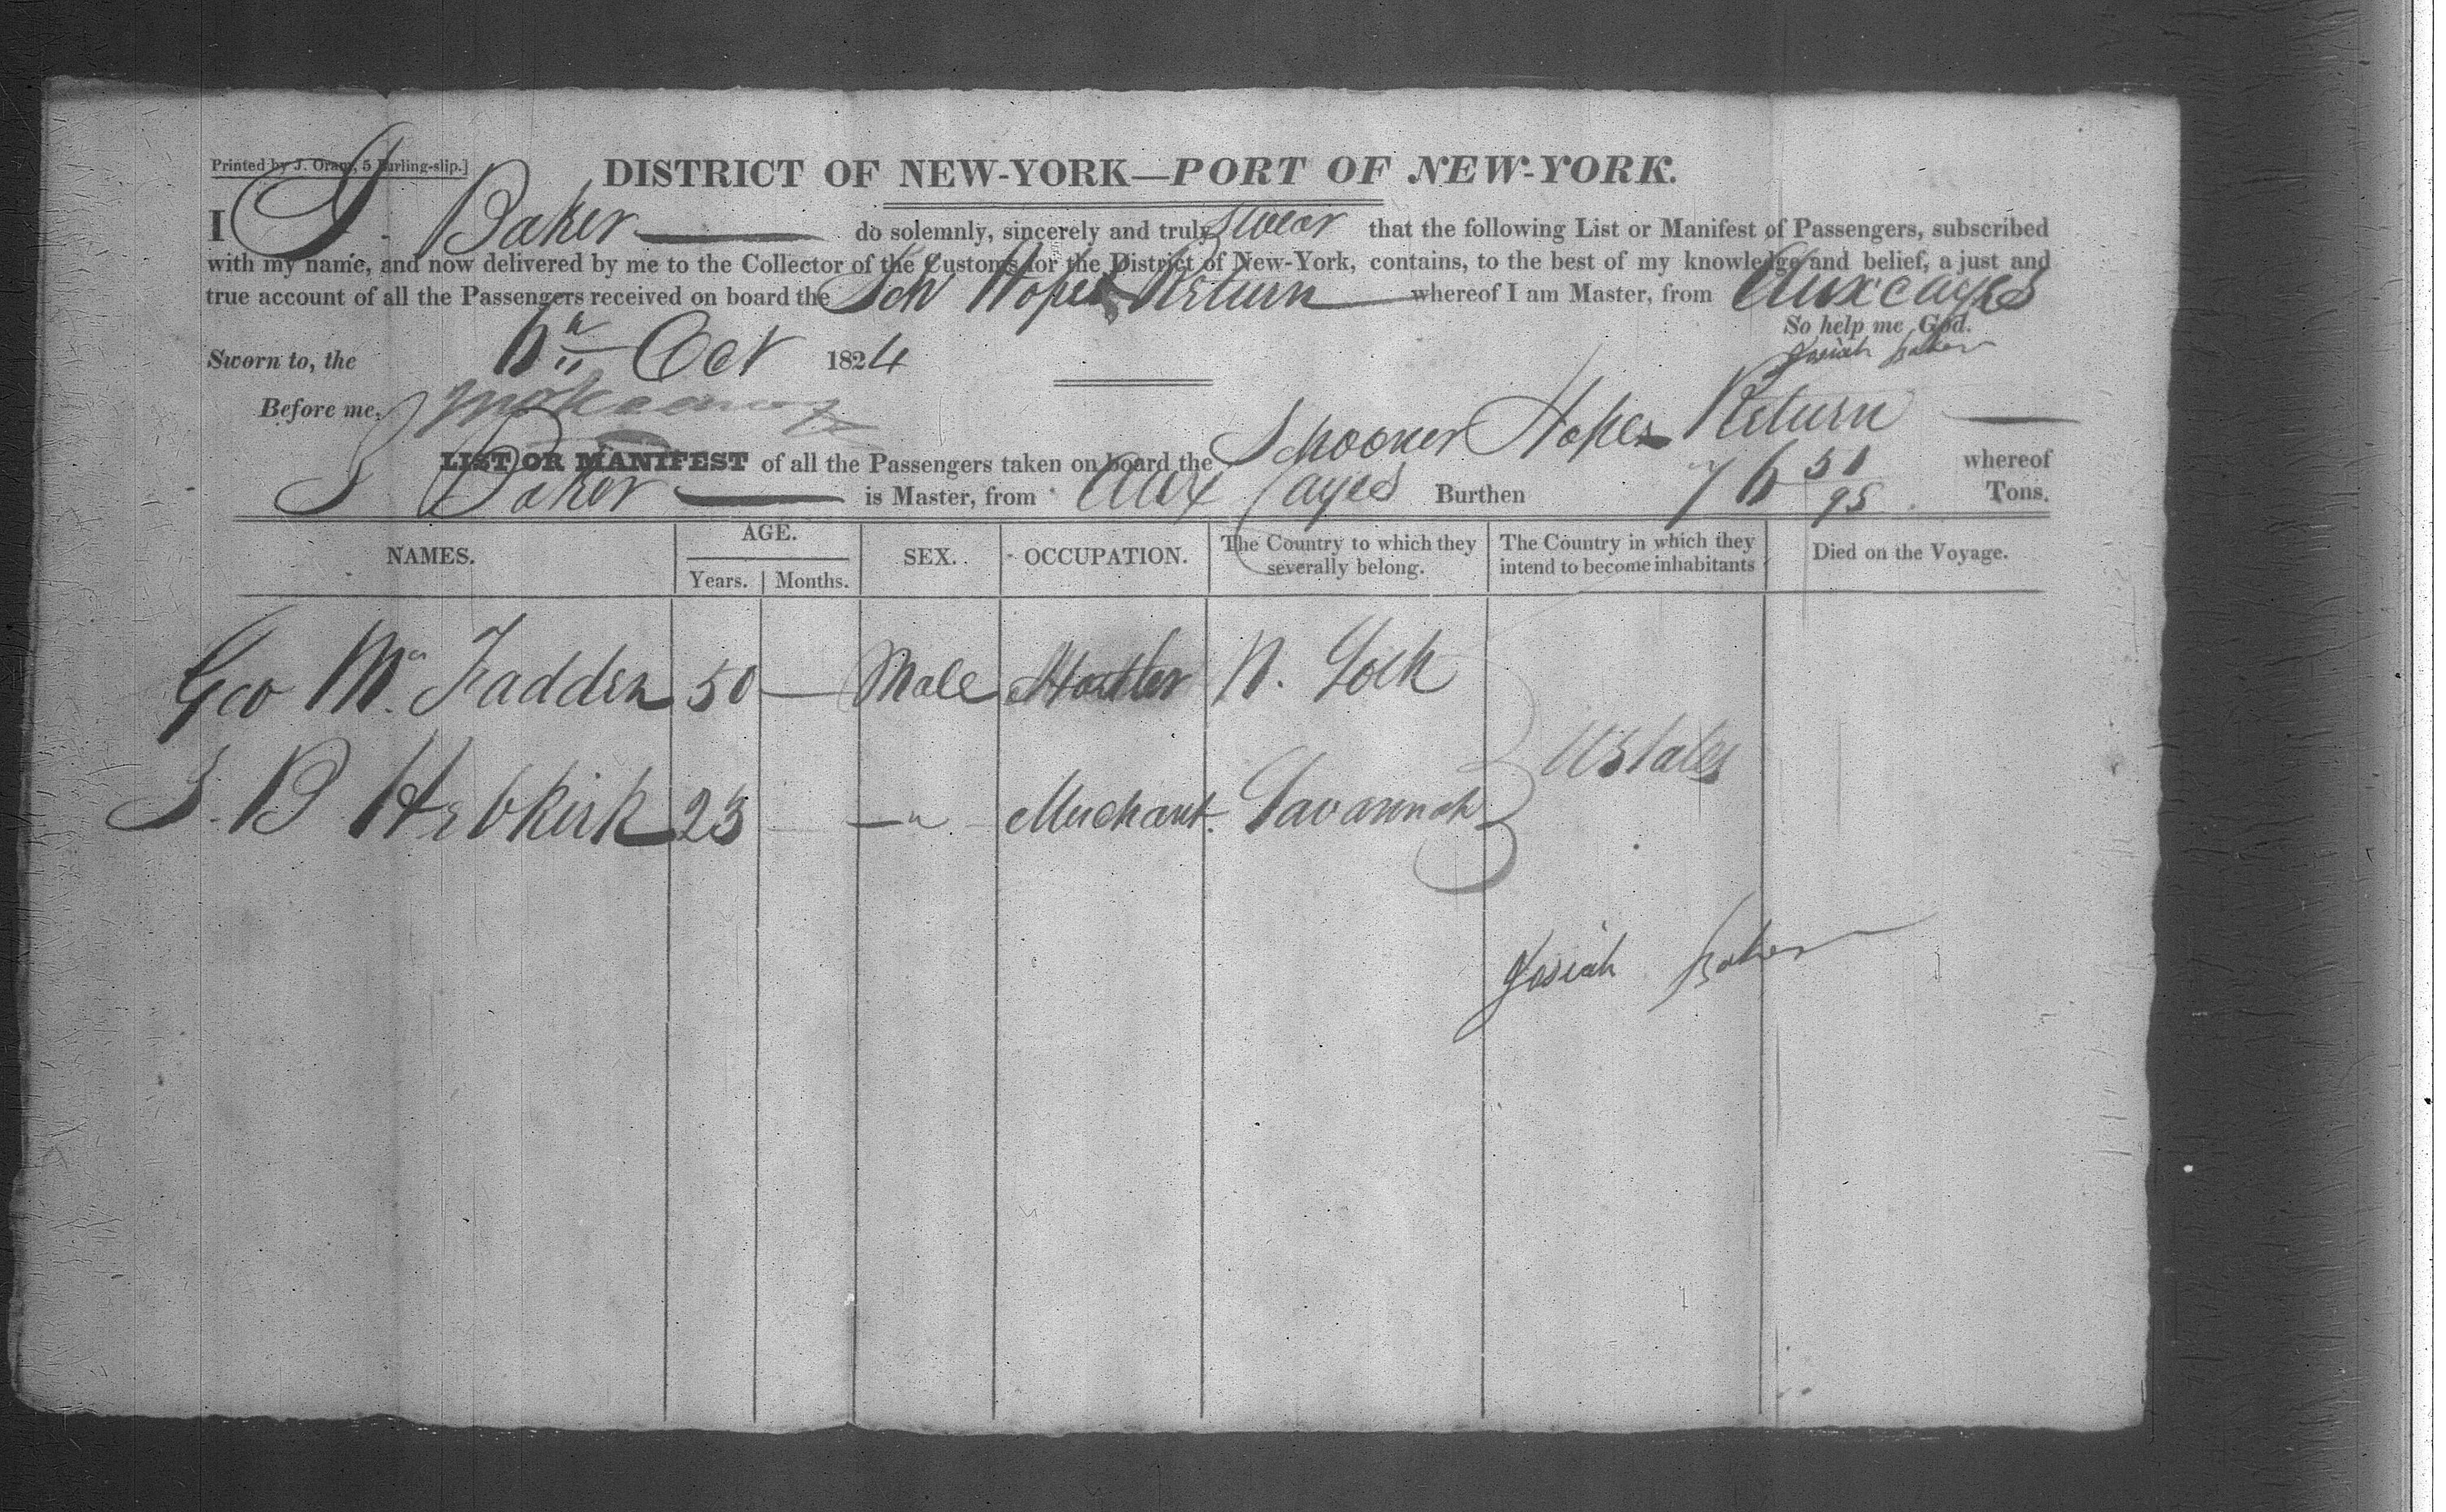 Printed by J. Oram, 5 Burling-slip.]
DISTRICT OF NEW-YORK—PORT OF NEW-YORK.
I J. Baker do solemnly, sincerely and truly swear that the following List or Manifest of Passengers, subscribed
with my name, and now delivered by me to the Collector of the Customs for the District of New-York, contains, to the best of my knowledge and belief, a just and
true account of all the Passengers received on board the Sch Hopes Return whereof I am Master, from Aux cayes
So help me God.
Sworn to, the 6th Oct 1824
Josiah Baker
Before me,
LIST OR MANIFEST of all the Passengers taken on board the Schooner Hopes Return whereof
J Baker is Master, from Aux Cayes Burthen 76 51/95 Tons.
NAMES. AGE. Years. Months. SEX. OCCUPATION. The Country to which they severally belong. The Country in which they intend to become inhabitants Died on the Voyage.
Geo Mc Fadden 50 — Male N. York
U States
J. B Hebkirk 23 — " Merchant. Savannah
Josiah Baker